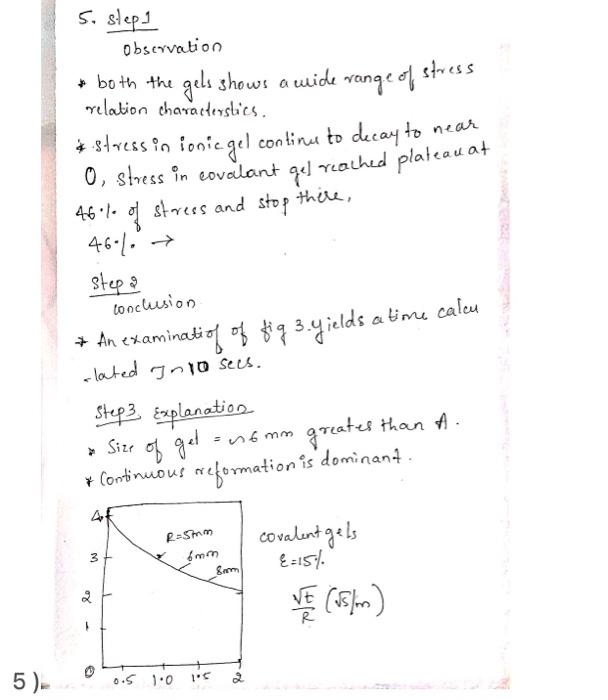 5. Step 1
Observation
* both the gels shows a wide range of stress
relation characterstics.
* stress in ionic gel continu to decay to near
0, stress in covalant gel reached plateau at
46% of stress and stop there,
46% →
Step 2
conclusion
* An examinatiof of fig 3. yields a time calcu
-lated J~10 secs.
Step 3, Explanation
* Size of gel = ~6mm greates than A.
* Continuous reformation is dominant.
4
R=5mm
covalent gels
3
6mm
ε=15%
8mm
2
√t/R (√s/m)
1
0
0.5 1.0 1.5 2
5)